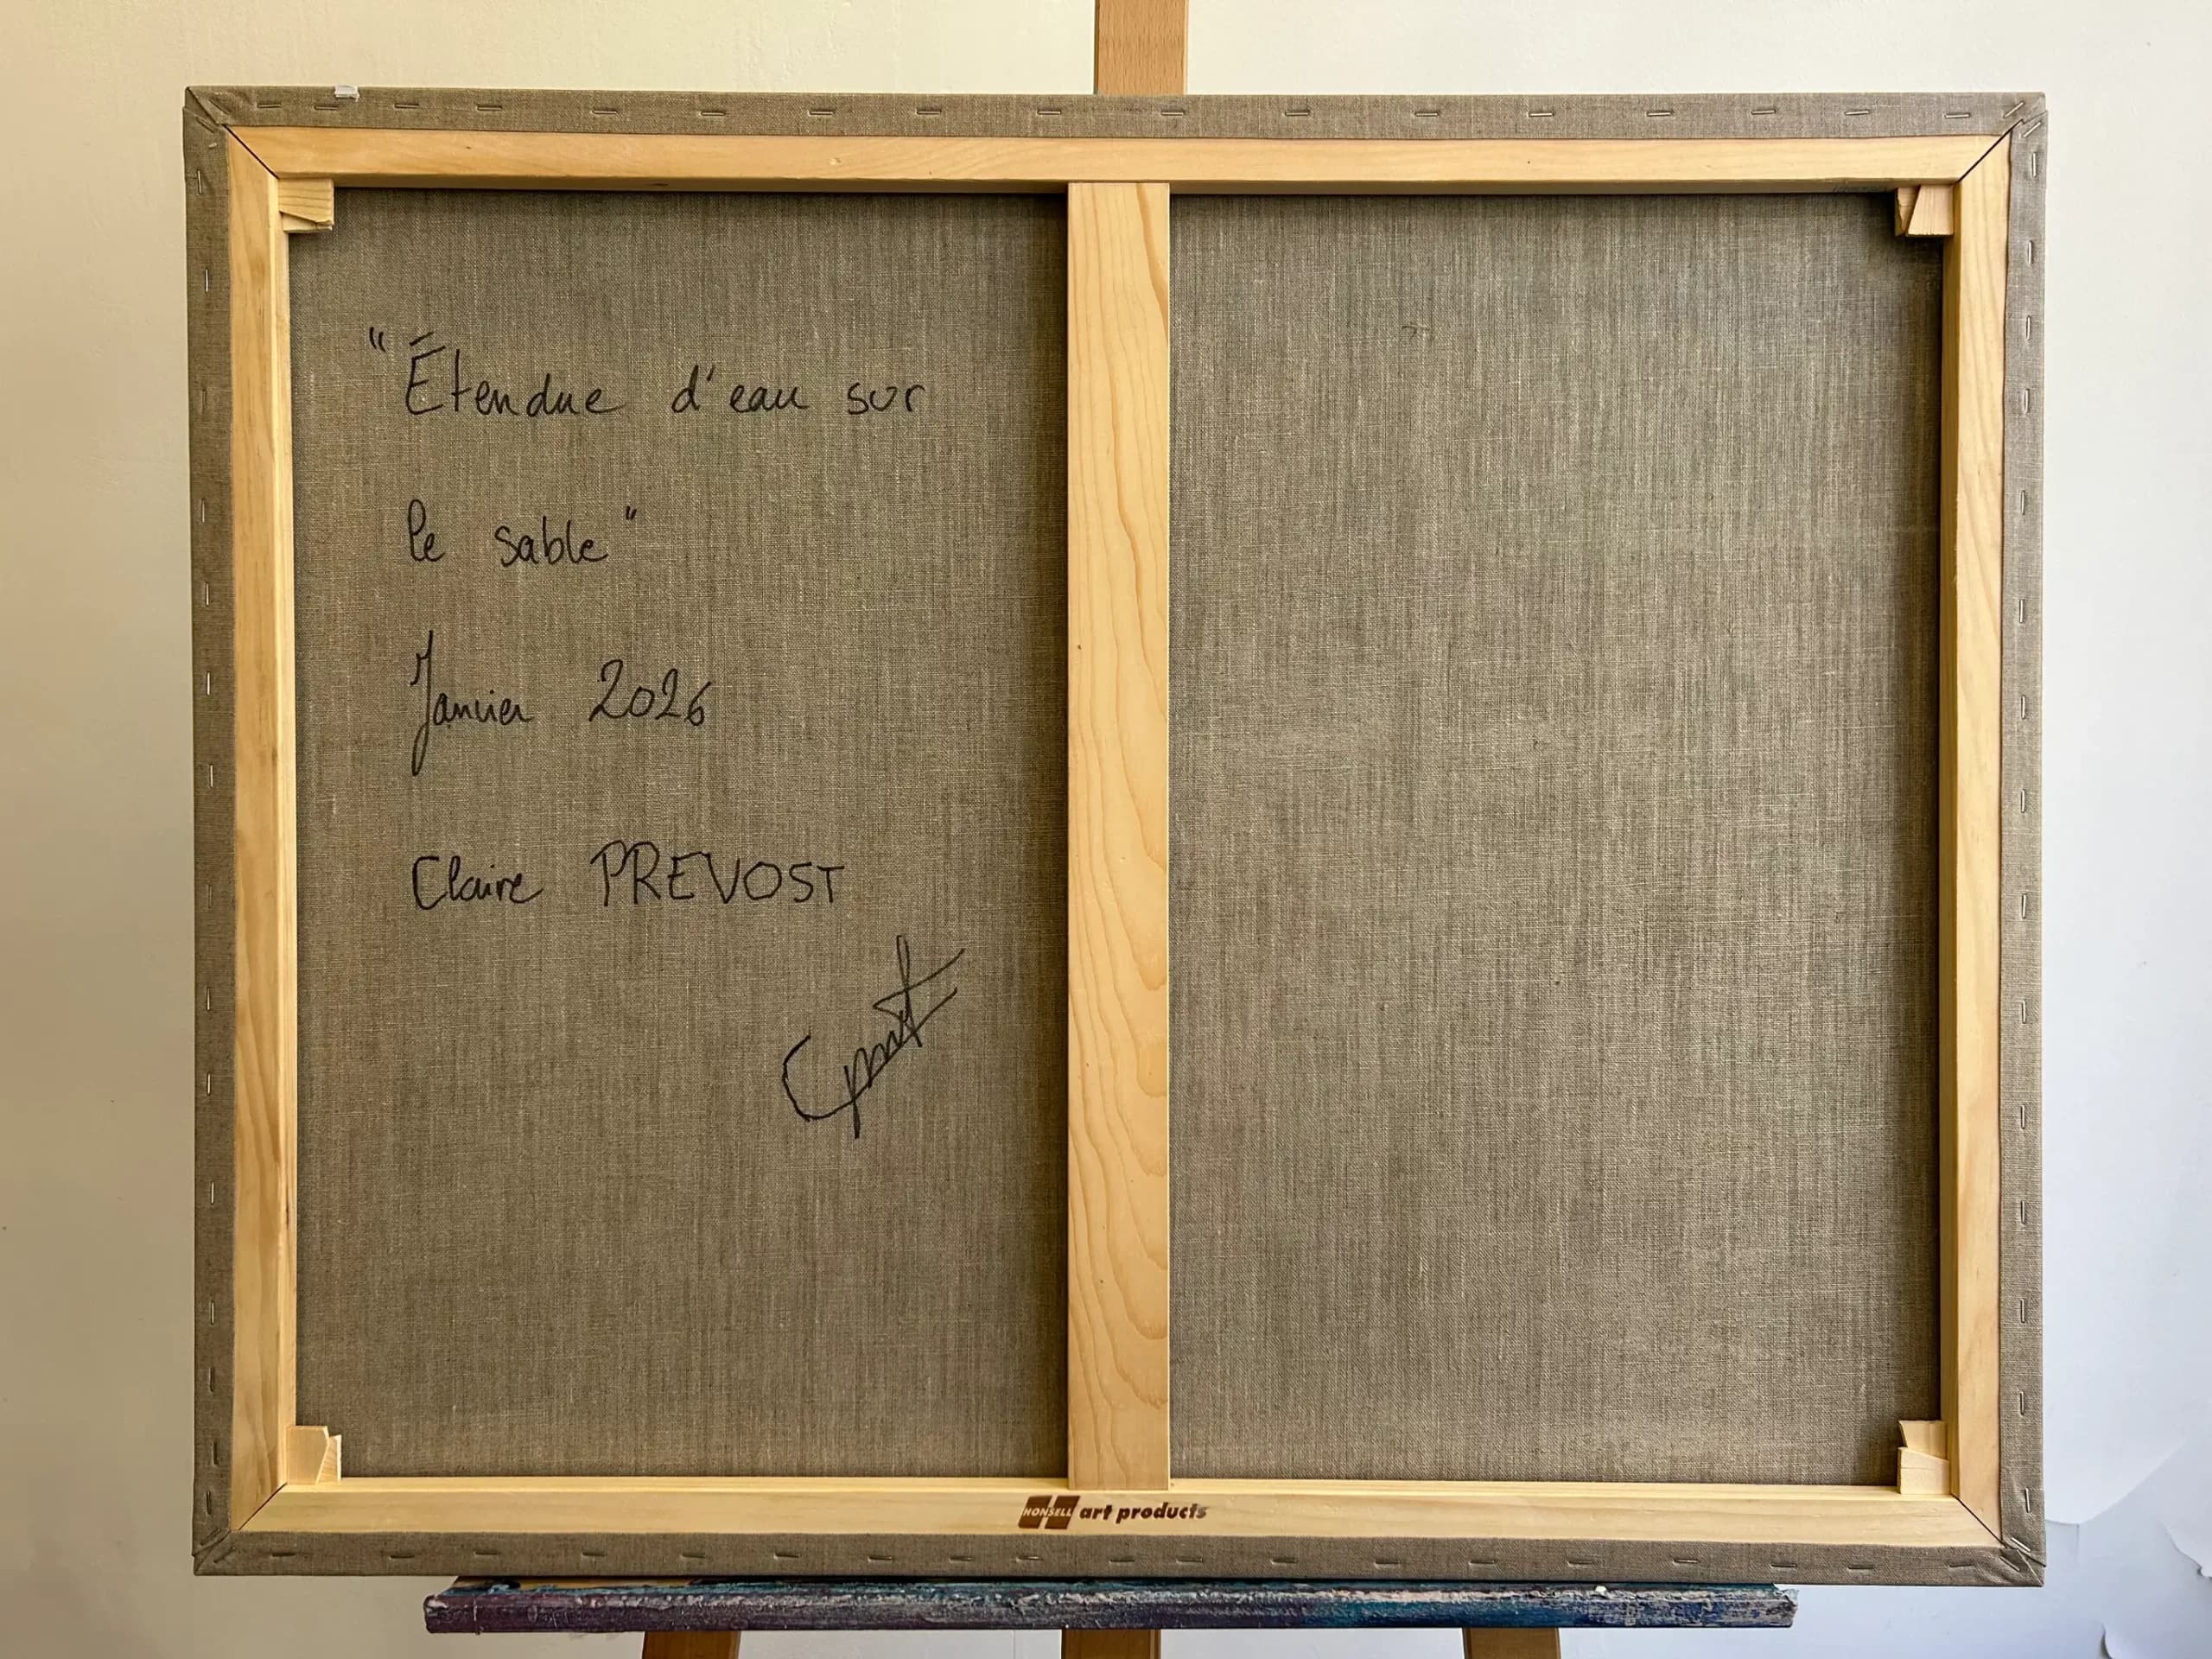 "Étendue d'eau sur
le sable"
Janvier 2026
Claire PREVOST
HONSELL art products